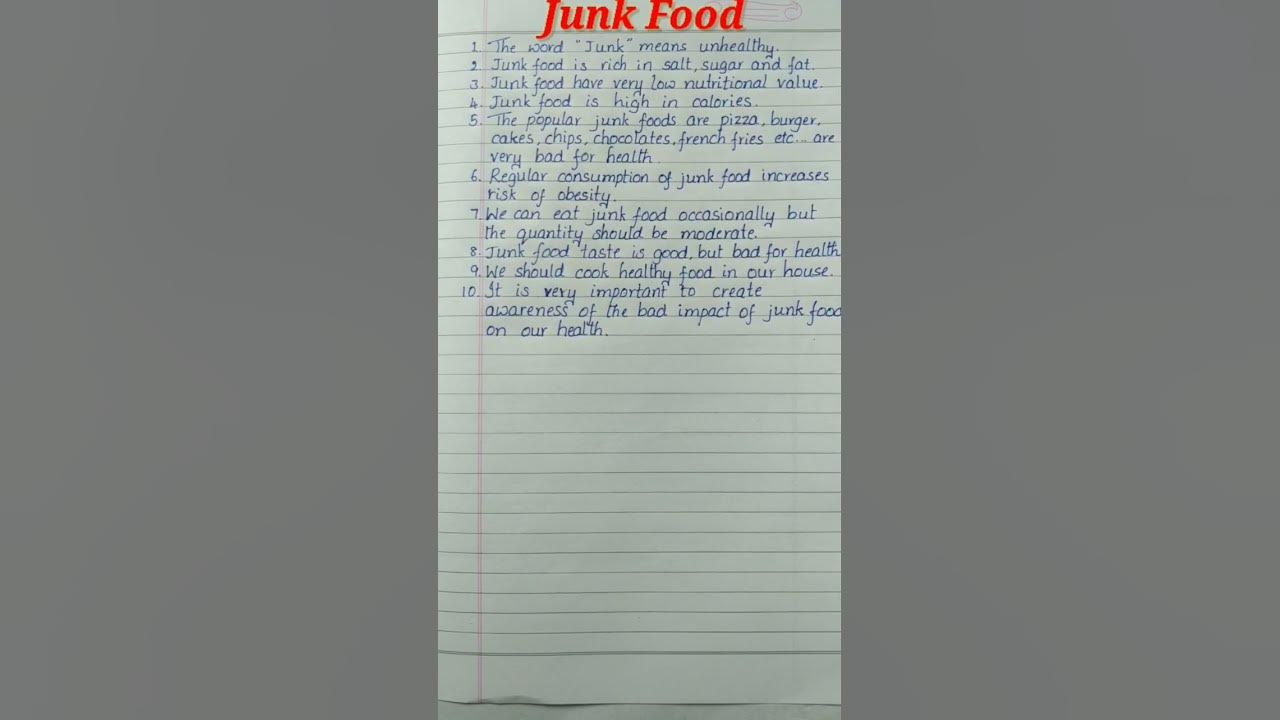 Junk Food
1. The word "Junk" means unhealthy.
2. Junk food is rich in salt, sugar and fat.
3. Junk food have very low nutritional value.
4. Junk food is high in calories.
5. The popular junk foods are pizza, burger,
cakes, chips, chocolates, french fries etc... are
very bad for health.
6. Regular consumption of junk food increases
risk of obesity.
7. We can eat junk food occasionally but
the quantity should be moderate.
8. Junk food taste is good, but bad for health
9. We should cook healthy food in our house.
10. It is very important to create
awareness of the bad impact of junk food
on our health.